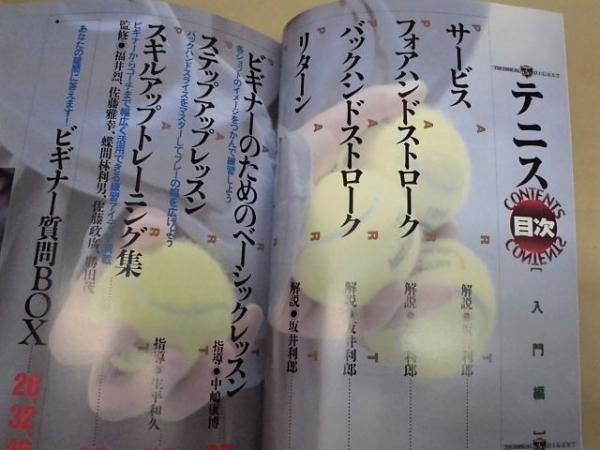 TECHNICAL DIGEST
テニス
CONTENTS
目次
CONTENTS
[入門編]
TECHNICAL DIGEST
PART
サービス
解説●坂井利郎
PART
フォアハンドストローク
解説●坂井利郎
PART
バックハンドストローク
解説●坂井利郎
PART
リターン
解説●坂井利郎
PART
ビギナーのためのベーシックレッスン
各ショットのイメージをつかんで練習しよう
指導●中嶋康博
PART
ステップアップレッスン
バックハンドスライスをマスターしてプレーの幅を広げよう
指導●生平和久
PART
スキルアップトレーニング集
ビギナーからコーチまで幅広く活用できる練習
監修●福井烈、佐藤雅幸、蝶間林利男、佐藤政廣、勝田茂
あなたの疑問に答えます!
ビギナー質問BOX
20、
32、